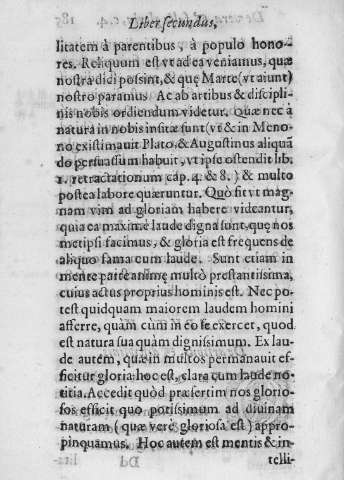 Liber secundus,
litatem à parentibus, à populo hono-
res. Reliquum est vt ad ea veniamus, quæ
nostra dici possint, & quę Marte (vt aiunt)
nostro paramus. Ac ab artibus & discipli-
nis nobis ordiendum videtur. Quæ nec à
natura in nobis insitæ sunt (vt & in Meno-
no existimauit Plato, & Augustinus aliquā
do persuassum habuit, vt ipse ostendit lib.
1. retractationum cap. 4. & 8.) & multo
postea labore quæruntur. Quò fit vt mag-
nam vim ad gloriam habere videantur,
quia ea maximè laude digna sunt, quę nos
metipsi facimus, & gloria est frequens de
aliquo fama cum laude. Sunt etiam in
mente parte animę multò prestantissima,
cuius actus proprius hominis est. Nec po-
test quidquam maiorem laudem homini
afferre, quàm cùm in eo se exercet, quod
est natura sua quàm dignissimum. Ex lau-
de autem, quæ in multos permanauit ef-
ficitur gloria hoc est, clara cum laude no-
titia. Accedit quòd præsertim nos glorio-
sos efficit quo potissimum ad diuinam
naturam (quæ verè gloriosa est) appro-
pinquamus. Hoc autem est mentis & in-
telli-